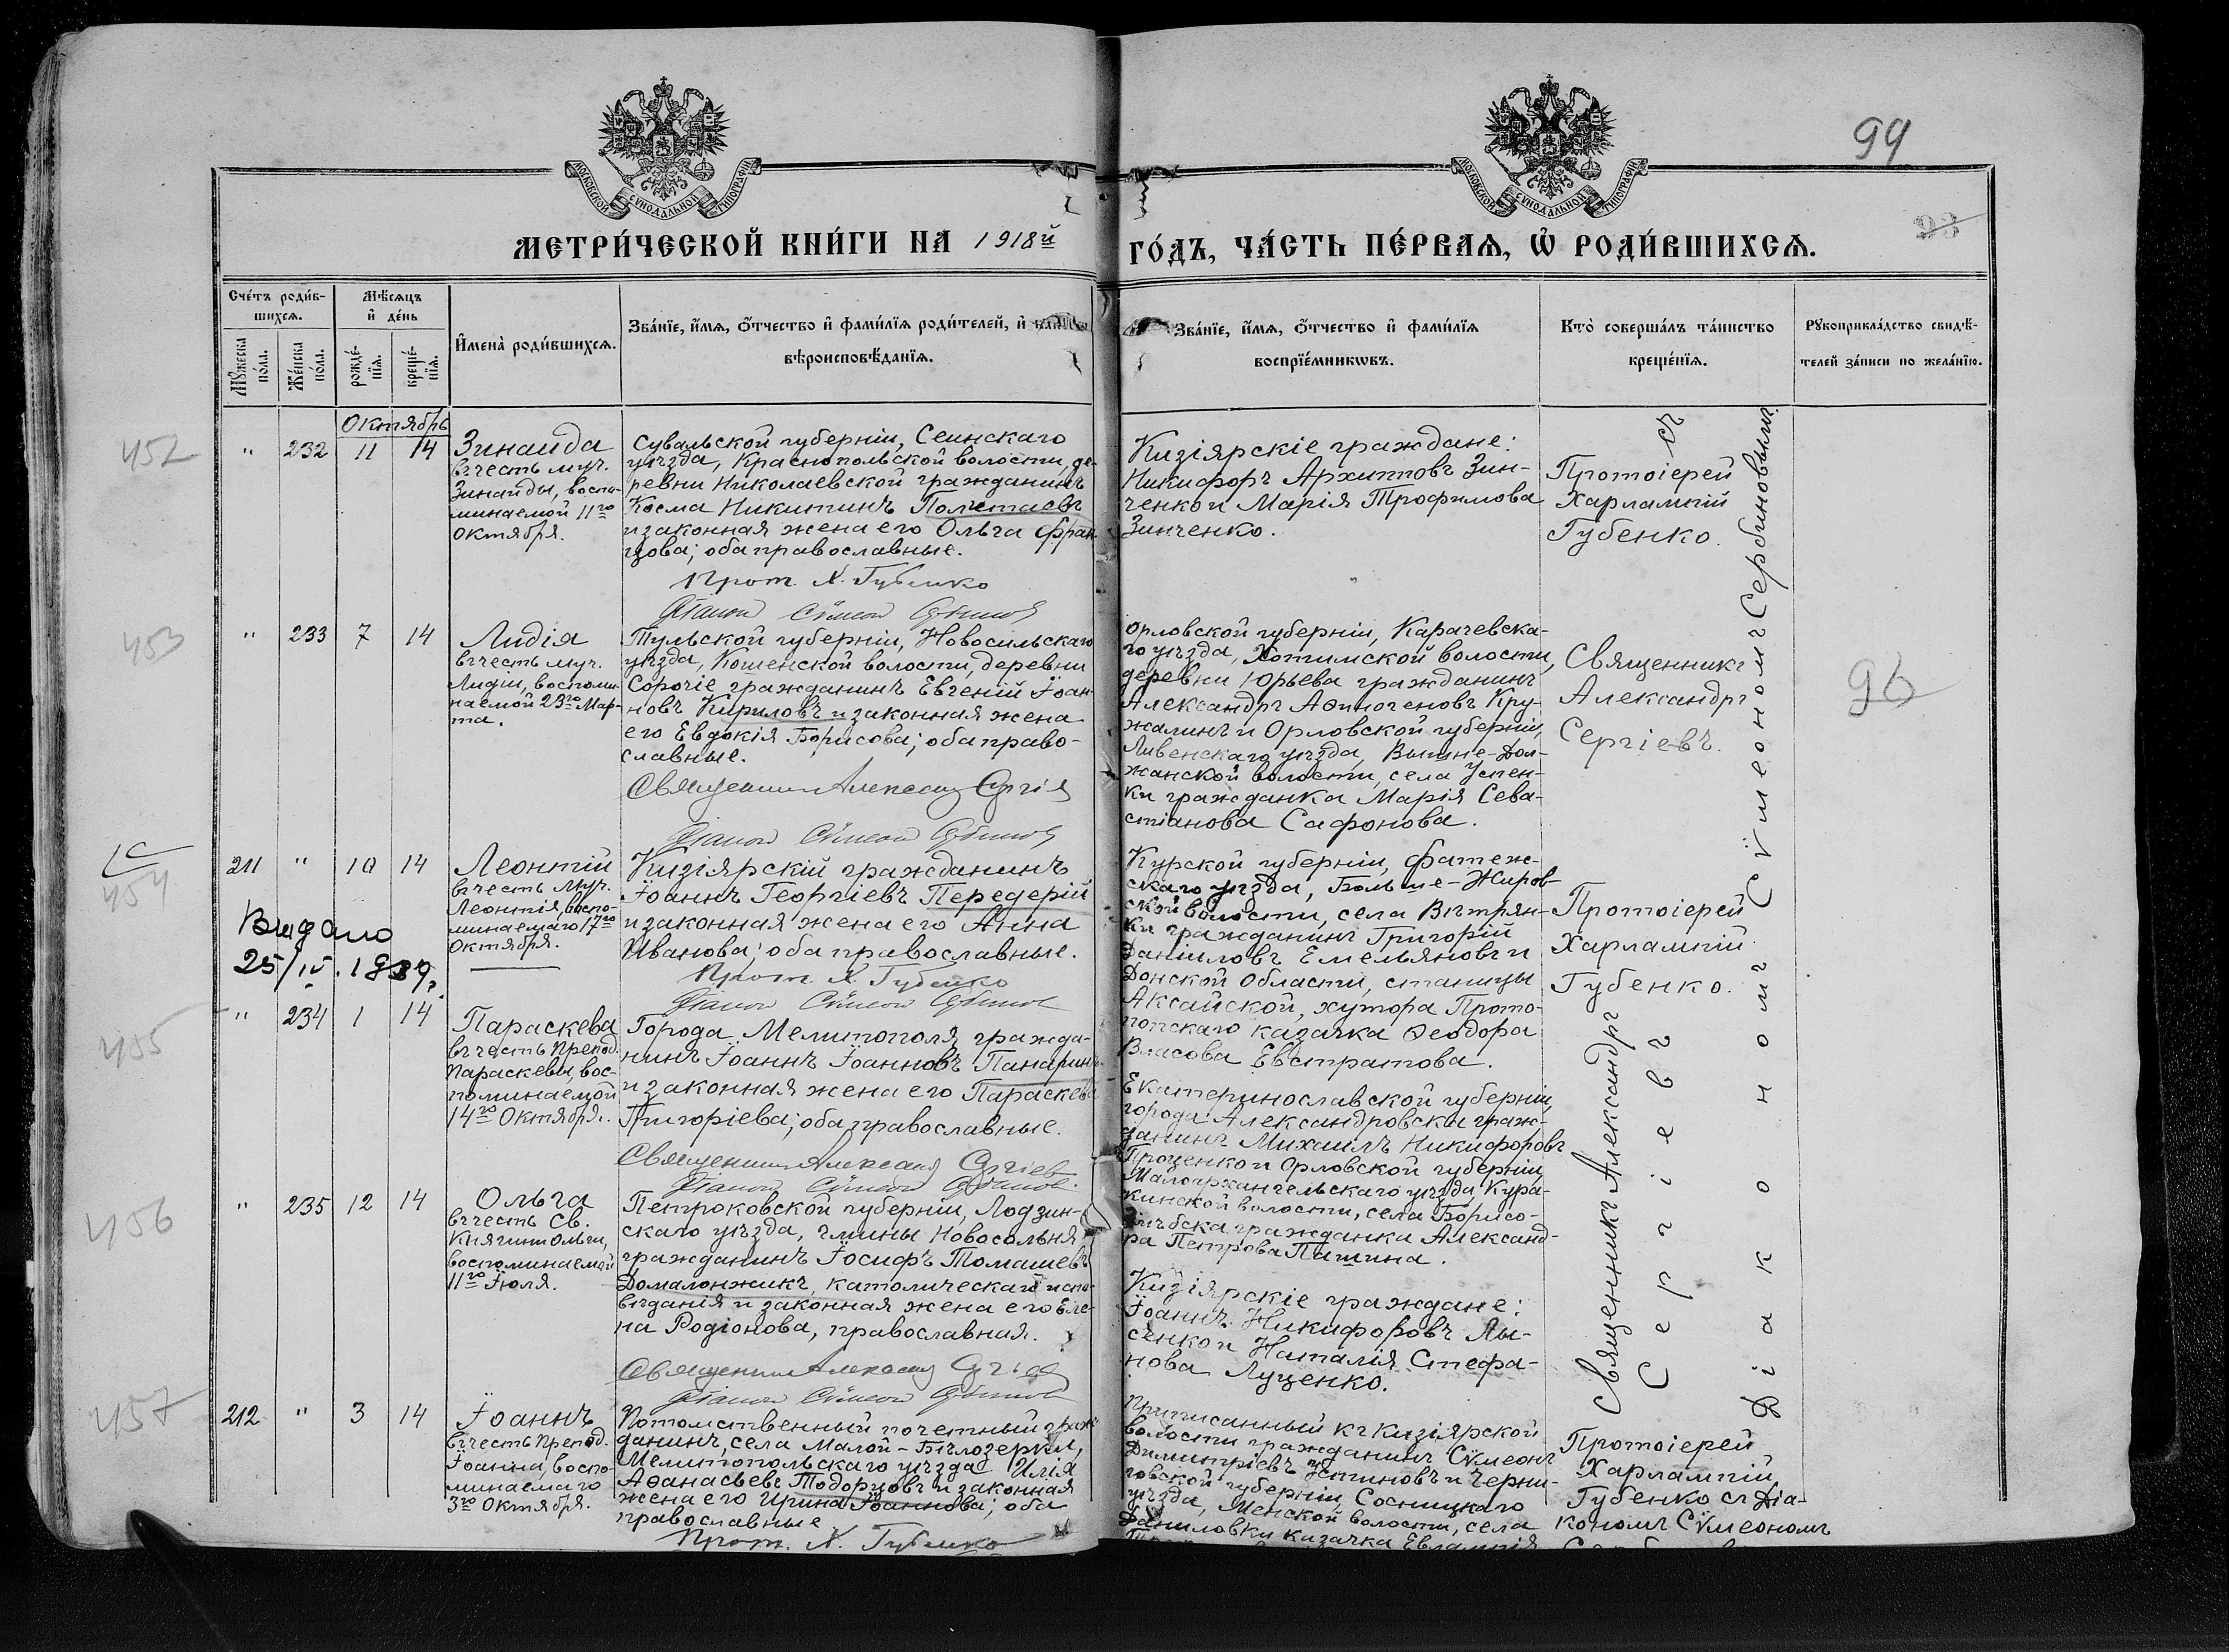 99
93
МОСКОВСКОЙ СѴНОДАЛЬНОЙ ТИПОГРАФІИ
МОСКОВСКОЙ СѴНОДАЛЬНОЙ ТИПОГРАФІИ
МЕТРИ́ЧЕСКОЙ КНИ́ГИ НА 1918й
ГО́ДЪ, ЧА́СТЬ ПЕ́РВАѦ, Ѡ҆ РОДИ́ВШИХСѦ.
Сче́тъ роди́в-
шихсѧ.
Мꙋ́жеска по́ла.
Же́нска по́ла.
Мѣ́сѧцъ
и҆ де́нь
рожде́-
нїѧ.
креще́-
нїѧ.
И҆мена̀ роди́вшихсѧ.
Зва́нїе, и҆́мѧ, ѻ҆́тчество и҆ фами́лїѧ роди́телей, и҆
вѣроисповѣ́данїѧ.
Зва́нїе, и҆́мѧ, ѻ҆́тчество и҆ фами́лїѧ
воспрїе́мникѡвъ.
Кто̀ соверша́лъ та́инство
креще́нїѧ.
Рꙋкоприкла́дство свидѣ́-
телей за́писи по жела́нїю.
Октябрь
452
" 232 11 14
Зинаида
въ честь муч.
Зинаиды, воспо-
минаемой 11го
Октября.
Сувальской губерніи, Сеинскаго
уѣзда, Краснопольской волости, де-
ревни Николаевской гражданинъ
Косма Никитинъ Полетаевъ
и законная жена его Ольга Фран-
цова; оба православные.
Прот. Х. Губенко
Діакон Сѵмеон
Кизіярскіе граждане:
Никифоръ Архиповъ Зин-
ченко и Марія Трофимова
Зинченко.
Протоіерей
Харлампій
Губенко.
съ
453
" 233 7 14
Лидія
въ честь муч.
Лидіи, воспоми-
наемой 23го Мар-
та.
Тульской губерніи, Новосильскаго
уѣзда, Кошенской волости, деревни
Сорочіе гражданинъ Евгеній Іоан-
новъ Кириловъ и законная жена
его Евдокія Борисова; оба право-
славные.
Священник Александр Сергіев
Діакон Сѵмеон
Орловской губерніи, Карачевска-
го уѣзда, Хотимской волости,
деревни Юрьева гражданинъ
Александръ Аѳиногеновъ Кру-
жалинъ и Орловской губерніи,
Ливенскаго уѣзда, Вышне-Дол-
жанской волости, села Успен-
ки гражданка Марія Сева-
стіанова Сафонова.
Священникъ
Александръ
Сергіевъ.
96
454
211 " 10 14
Леонтій
въ честь муч.
Леонтія, воспо-
минаемаго 17го
Октября.
Видано
25/IV. 1939.
Кизіярскій гражданинъ
Іоаннъ Георгіевъ Передерій
и законная жена его Анна
Иванова; оба православные.
Прот. Х. Губенко
Діакон Сѵмеон
Курской губерніи, Фатеж-
скаго уѣзда, Больше-Жиров-
ской волости, села Вѣтрян-
ки гражданинъ Григорій
Даниловъ Емельяновъ и
Донской области, станицы
Аксайской, хутора Прото-
попскаго казачка Ѳеодора
Власова Евстратова.
Протоіерей
Харлампій
Губенко.
455
" 234 1 14
Параскева
въ честь Препод.
Параскевы, вос-
поминаемой
14го Октября.
Города Мелитополя гражда-
нинъ Іоаннъ Іоанновъ Панаринъ
и законная жена его Параскева
Григоріева; оба православные.
Священник Александр Сергіев
Діакон Сѵмеон
Екатеринославской губерніи,
города Александровска граж-
данинъ Михаилъ Никифоровъ
Проценко и Орловской губерніи,
Малоархангельскаго уѣзда, Кура-
кинской волости, села Борисо-
глѣбска, гражданка Александ-
ра Петрова Пашина.
Священникъ Александръ
Сергіевъ
456
" 235 12 14
Ольга
въ честь Св.
Княгини Ольги,
воспоминаемой
11го Іюля.
Петроковской губерніи, Лодзин-
скаго уѣзда, гмины Новосольня
гражданинъ Іосифъ Томашевъ
Домалонжикъ, католическаго испо-
вѣданія и законная жена его Еле-
на Родіонова, православная.
Священник Александр Сергіев
Діакон Сѵмеон
Кизіярскіе граждане:
Іоаннъ Никифоровъ Лы-
сенко и Наталія Стефа-
нова Луценко.
Діакономъ Сѵмеономъ Сербиновымъ.
457
212 " 3 14
Іоаннъ
въ честь Препод.
Іоанна, воспо-
минаемаго
3го Октября.
Потомственный почетный граж-
данинъ, села Малой-Бѣлозерки,
Мелитопольскаго уѣзда Илія
Аѳанасьевъ Тодорцовъ и законная
жена его Ирина Іоаннова; оба
православные
Прот. Х. Губенко
Приписанный къ Кизіярской
волости гражданинъ Сѵмеонъ
Димитріевъ Устиновъ и Черни-
говской губерніи, Сосницкаго
уѣзда, Менской волости, села
Даниловки казачка Евлампія
Протоіерей
Харлампій
Губенко съ Діа-
кономъ Сѵмеономъ